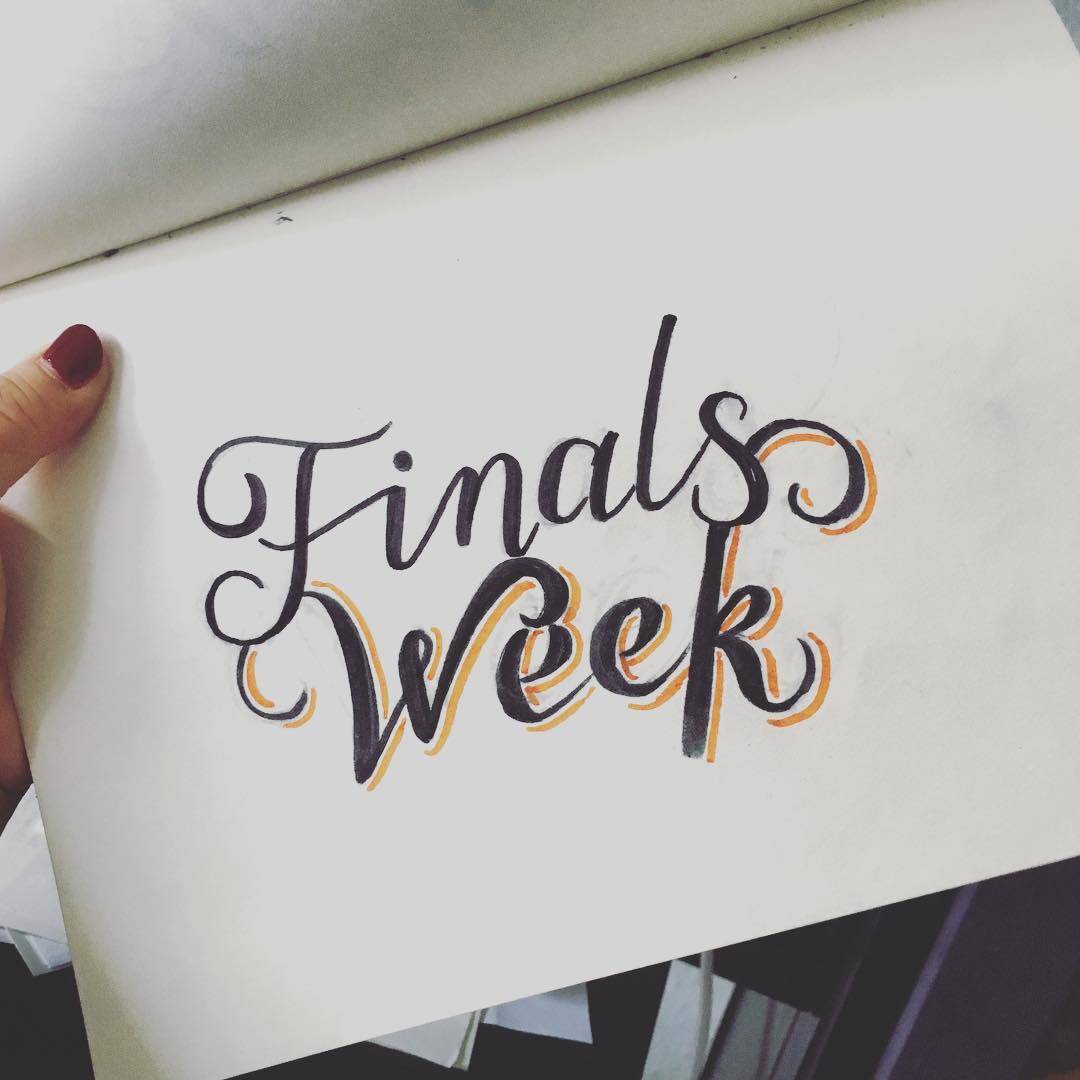 Finals
Week